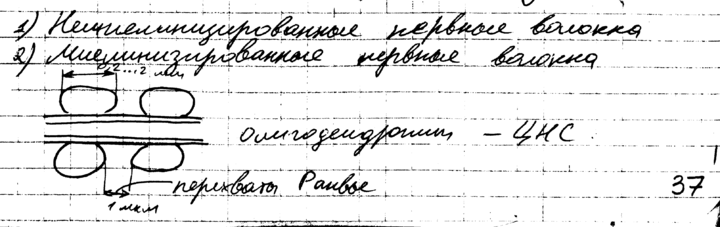 1) Немиелинизированные нервные волокна
2) Миелинизированные нервные волокна
0,2...2 мм
олигодендроциты – ЦНС
перехваты Ранвье
1 мкм
37